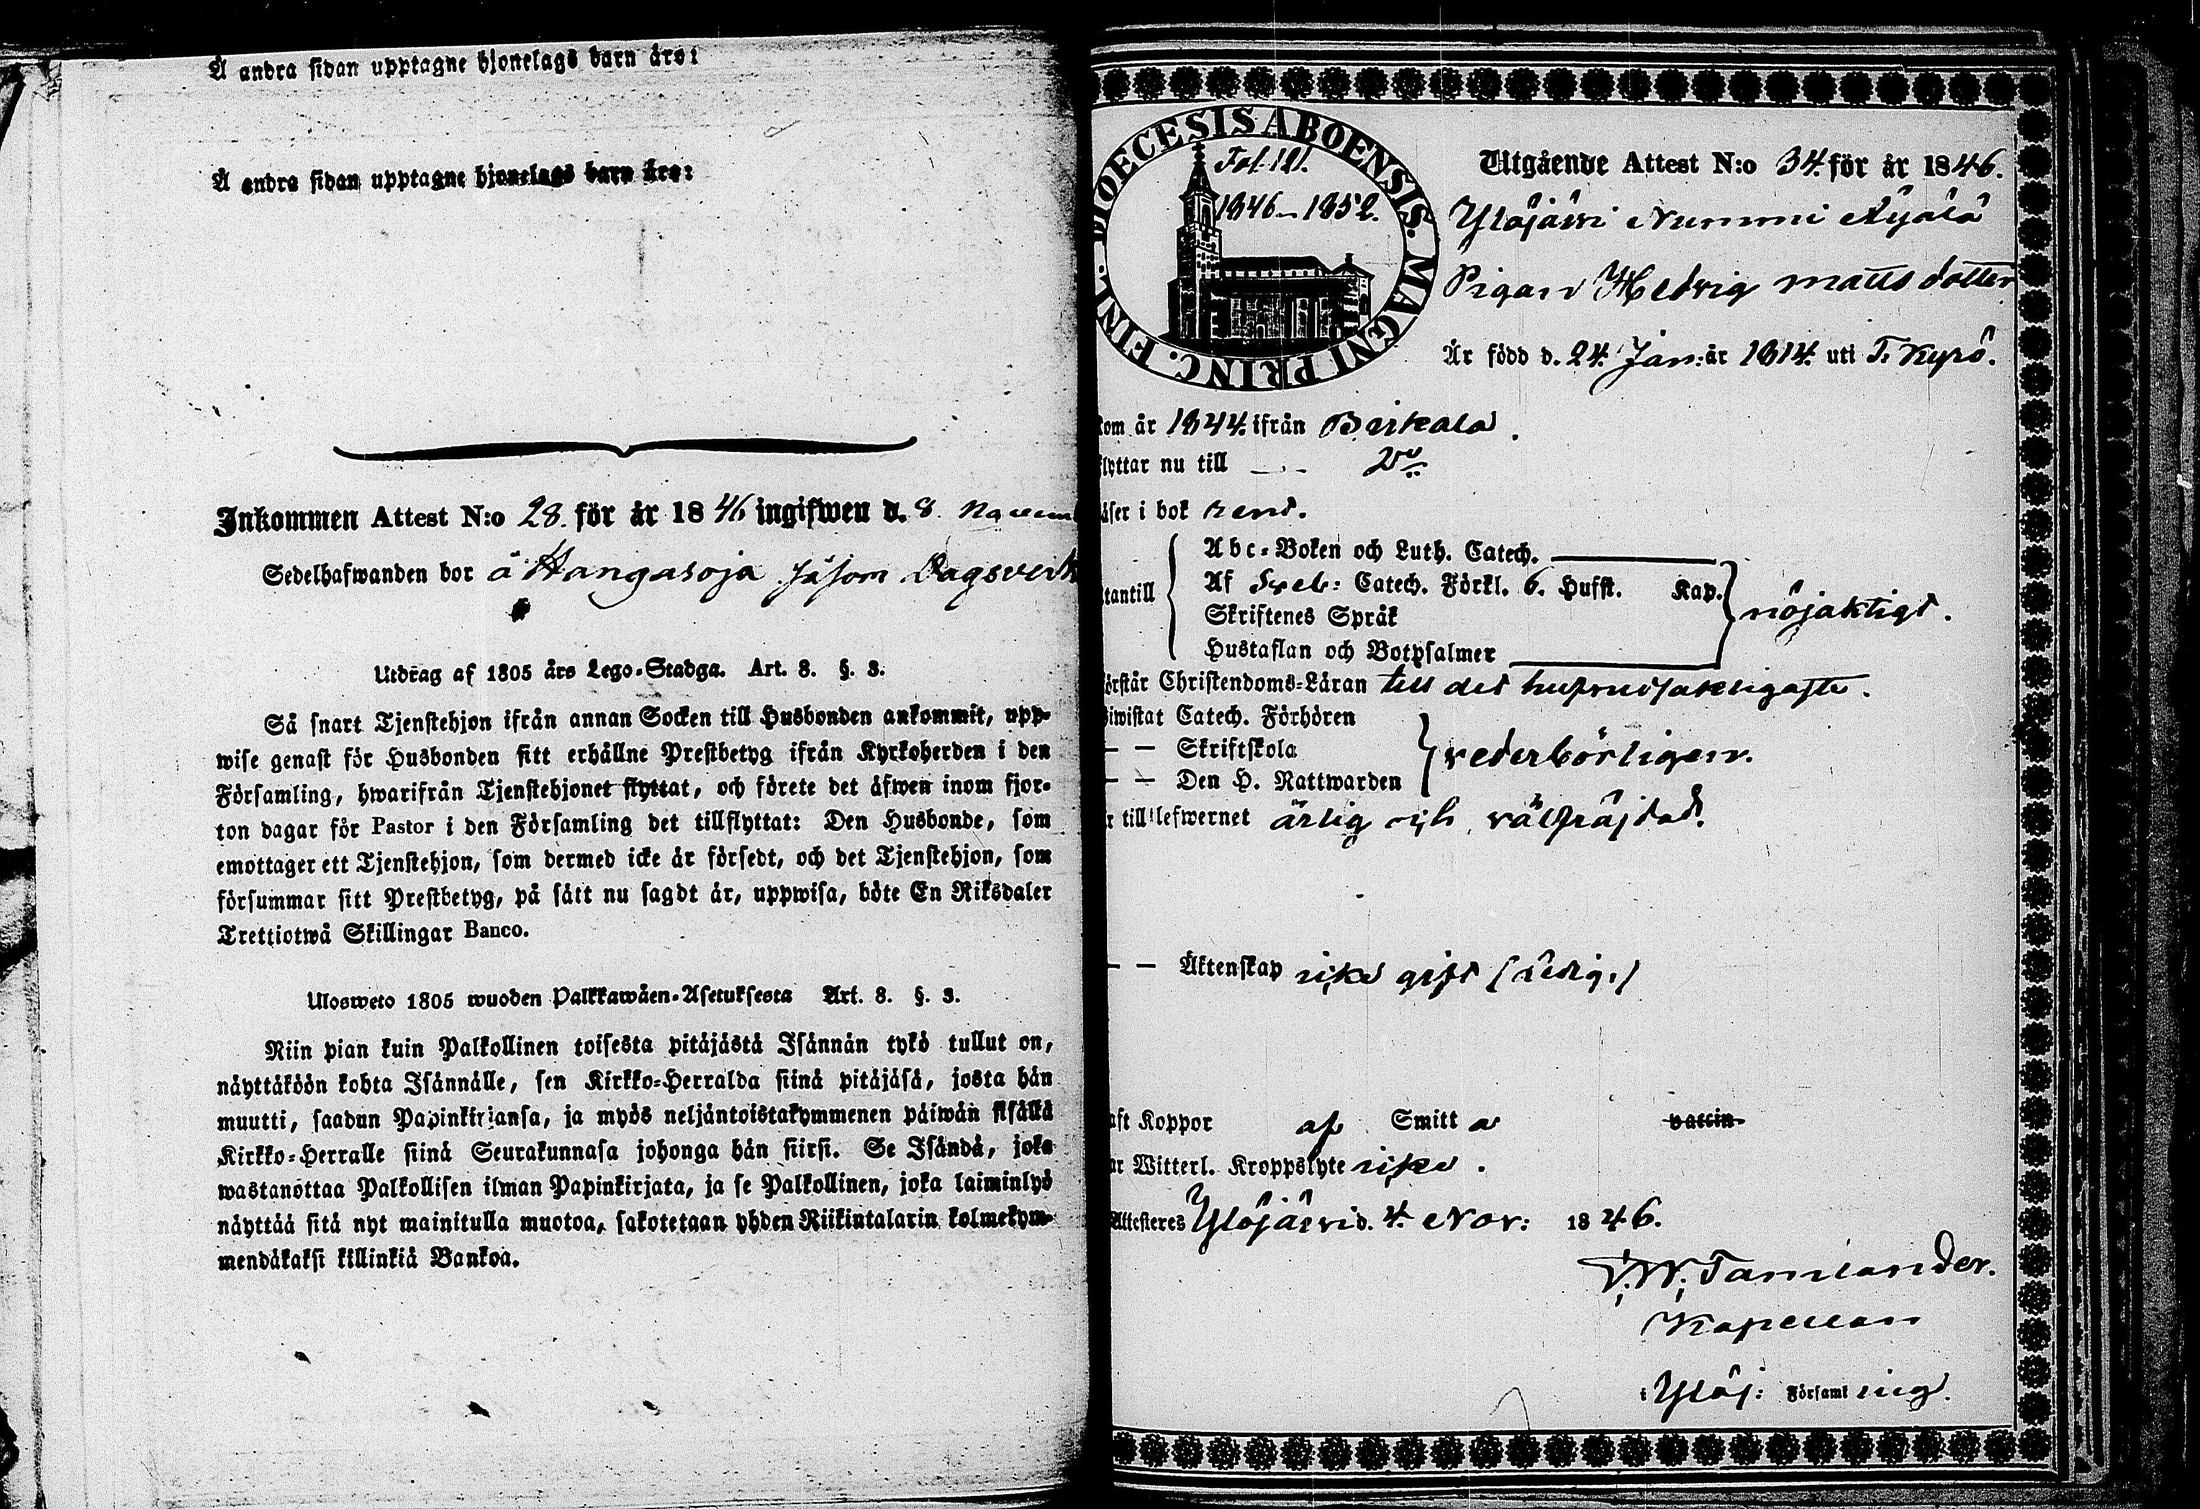 Å andra sidan upptagne hjonelags barn äro:
Å andra sidan upptagne hjonelags barn äro:
Inkommen Attest N:o 28. för år 1846 ingifwen d. 8. Novem
Sedelhafwanden bor å Hangasoja såsom Dagsverk
Utdrag af 1805 års Lego-Stadga. Art. 8. §. 3.
Så snart Tjenstehjon ifrån annan Socken till Husbonden ankommit, upp-
wise genast för Husbonden sitt erhållne Prestbetyg ifrån Kyrkoherden i den
Församling, hwarifrån Tjenstehjonet flyttat, och förete det äfwen inom fjor-
ton dagar för Pastor i den Församling det tillflyttat: Den Husbonde, som
emottager ett Tjenstehjon, som dermed icke är försedt, och det Tjenstehjon, som
försummar sitt Prestbetyg, på sätt nu sagdt är, uppwisa, böte En Riksdaler
Trettiotwå Skillingar Banco.
Ulosweto 1805 wuoden Palkkawäen-Asetuksesta Art. 8. §. 3.
Niin pian kuin Palkollinen toisesta pitäjästä Isännän tykö tullut on,
näyttäköön kohta Isännälle, sen Kirkko-Herralda siinä pitäjäsä, josta hän
muutti, saadun Papinkirjansa, ja myös neljäntoistakymmenen päiwän sisällä
Kirkko-Herralle siinä Seurakunnasa johonga hän siirsi. Se Isändä, joka
wastanottaa Palkollisen ilman Papinkirjata, ja se Palkollinen, joka laiminlyö
näyttää sitä nyt mainitulla muotoa, sakotetaan yhden Riikintalarin kolmekym-
mendäkaksi killinkiä Bankoa.
DIOECESIS ABOENSIS. MAGNI PRINC. FINL.
Fol. 181.
1846–1852.
Utgående Attest N:o 34. för år 1846.
Ylöjärvi Nummi
Pigan Hedvig Mattsdotter
Är född d. 24. Jan: år 1814. uti T. Kyrö.
kom år 1844. ifrån Birkala.
flyttar nu till
läser i bok rent.
Abc-Boken och Luth. Catech.
utantill Af Sveb: Catech. Förkl. 6. Hufst. Kap. nöjaktigt.
Skriftenes Språk
Hustaflan och Botpsalmer
förstår Christendoms-Läran till det hufvudsakligaste.
biwistat Catech. Förhören
— — Skriftskola vederbörligen.
— — Den H. Nattwarden
är till lefwernet ärlig och välfräjdad.
— — Äktenskap icke gift (ledig.)
haft Koppor af Smitta vaccin
har Witterl. Kroppslyte icke.
Attesteres Ylöjärvi d. 4. Nov: 1846.
Tamlander.
Kapellan
i Ylöj: Församling.